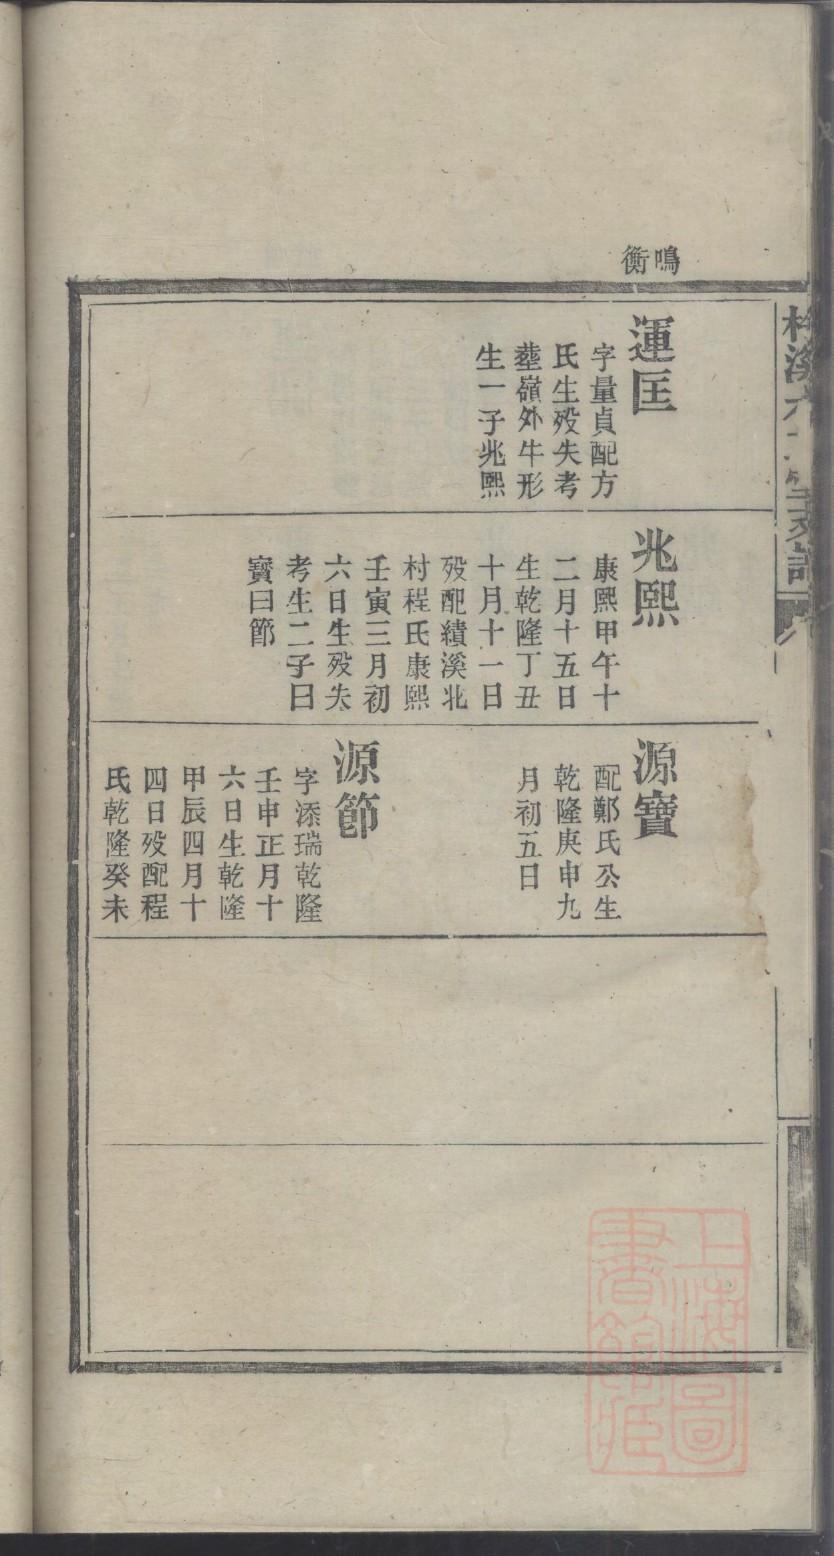 鳴
衡
運匡
字量貞配方
氏生殁失考
塟嶺外牛形
生一子兆熙
兆熙
康熙甲午十
二月十五日
生乾隆丁丑
十月十一日
殁配績溪北
村程氏康熙
壬寅三月初
六日生殁失
考生二子曰
寳曰節
源寳
配鄭氏公生
乾隆庚申九
月初五日
源節
字添瑞乾隆
壬申正月十
六日生乾隆
甲辰四月十
四日殁配程
氏乾隆癸未
上海圖
書館藏